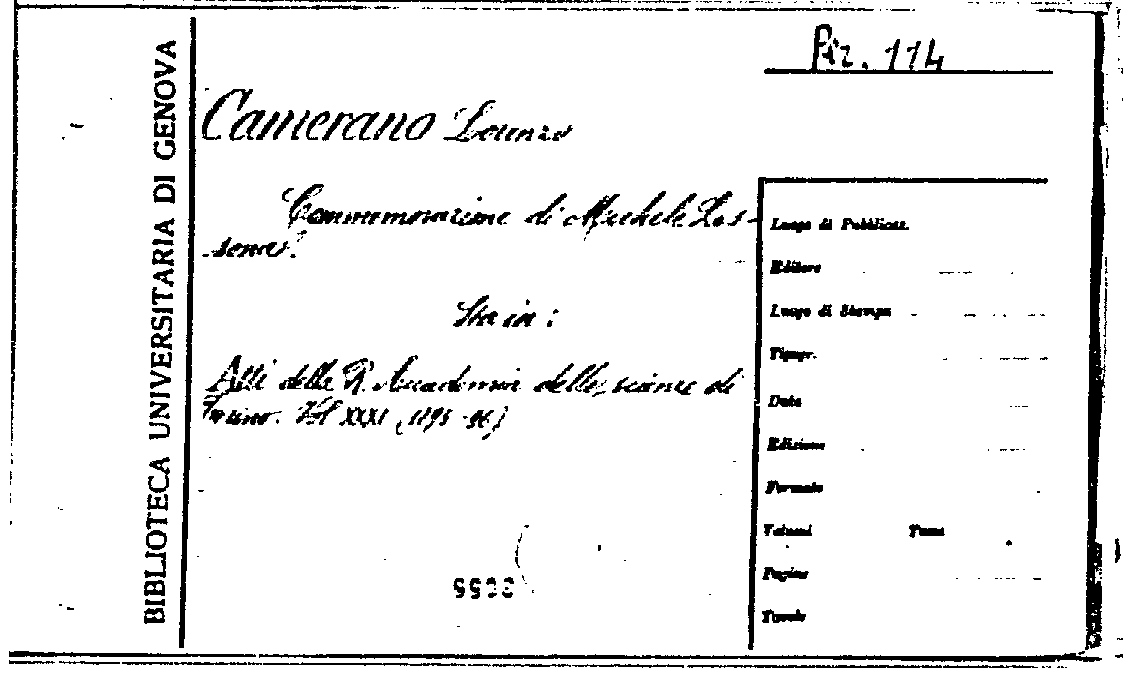 BIBLIOTECA UNIVERSITARIA DI GENOVA
Per. 114
Camerano Lorenzo
Commemorazione di Michele Les-
sona.
Sta in:
Atti della R. Accademia delle scienze di
Torino. Vol XXXI (1895-96)
Luogo di Pubblicaz.
Editore
Luogo di Stampa
Tipogr.
Data
Edizione
Formato
Volumi Tomi
Pagine
Tavole